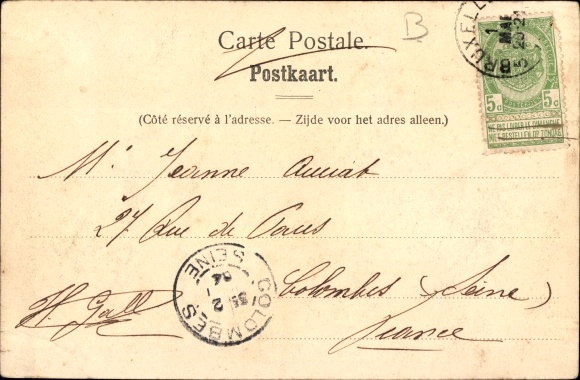 B
Carte Postale.
Postkaart.
(Côté réservé à l'adresse. — Zijde voor het adres alleen.)
BRUXELL
1
MAR
5c 5c
NE PAS LIVRER LE DIMANCHE
NIET BESTELLEN OP ZONDAG
Jeanne
27 Rue de Paris
Colombes (Seine)
France
H. Gall
COLOMBES
SEINE
2
04